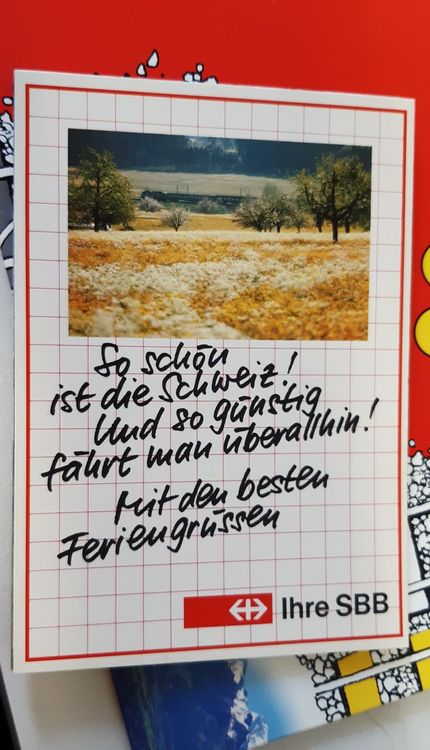 So schön
ist die Schweiz!
Und so günstig
fährt man überallhin!
Mit den besten
Feriengrüssen
Ihre SBB